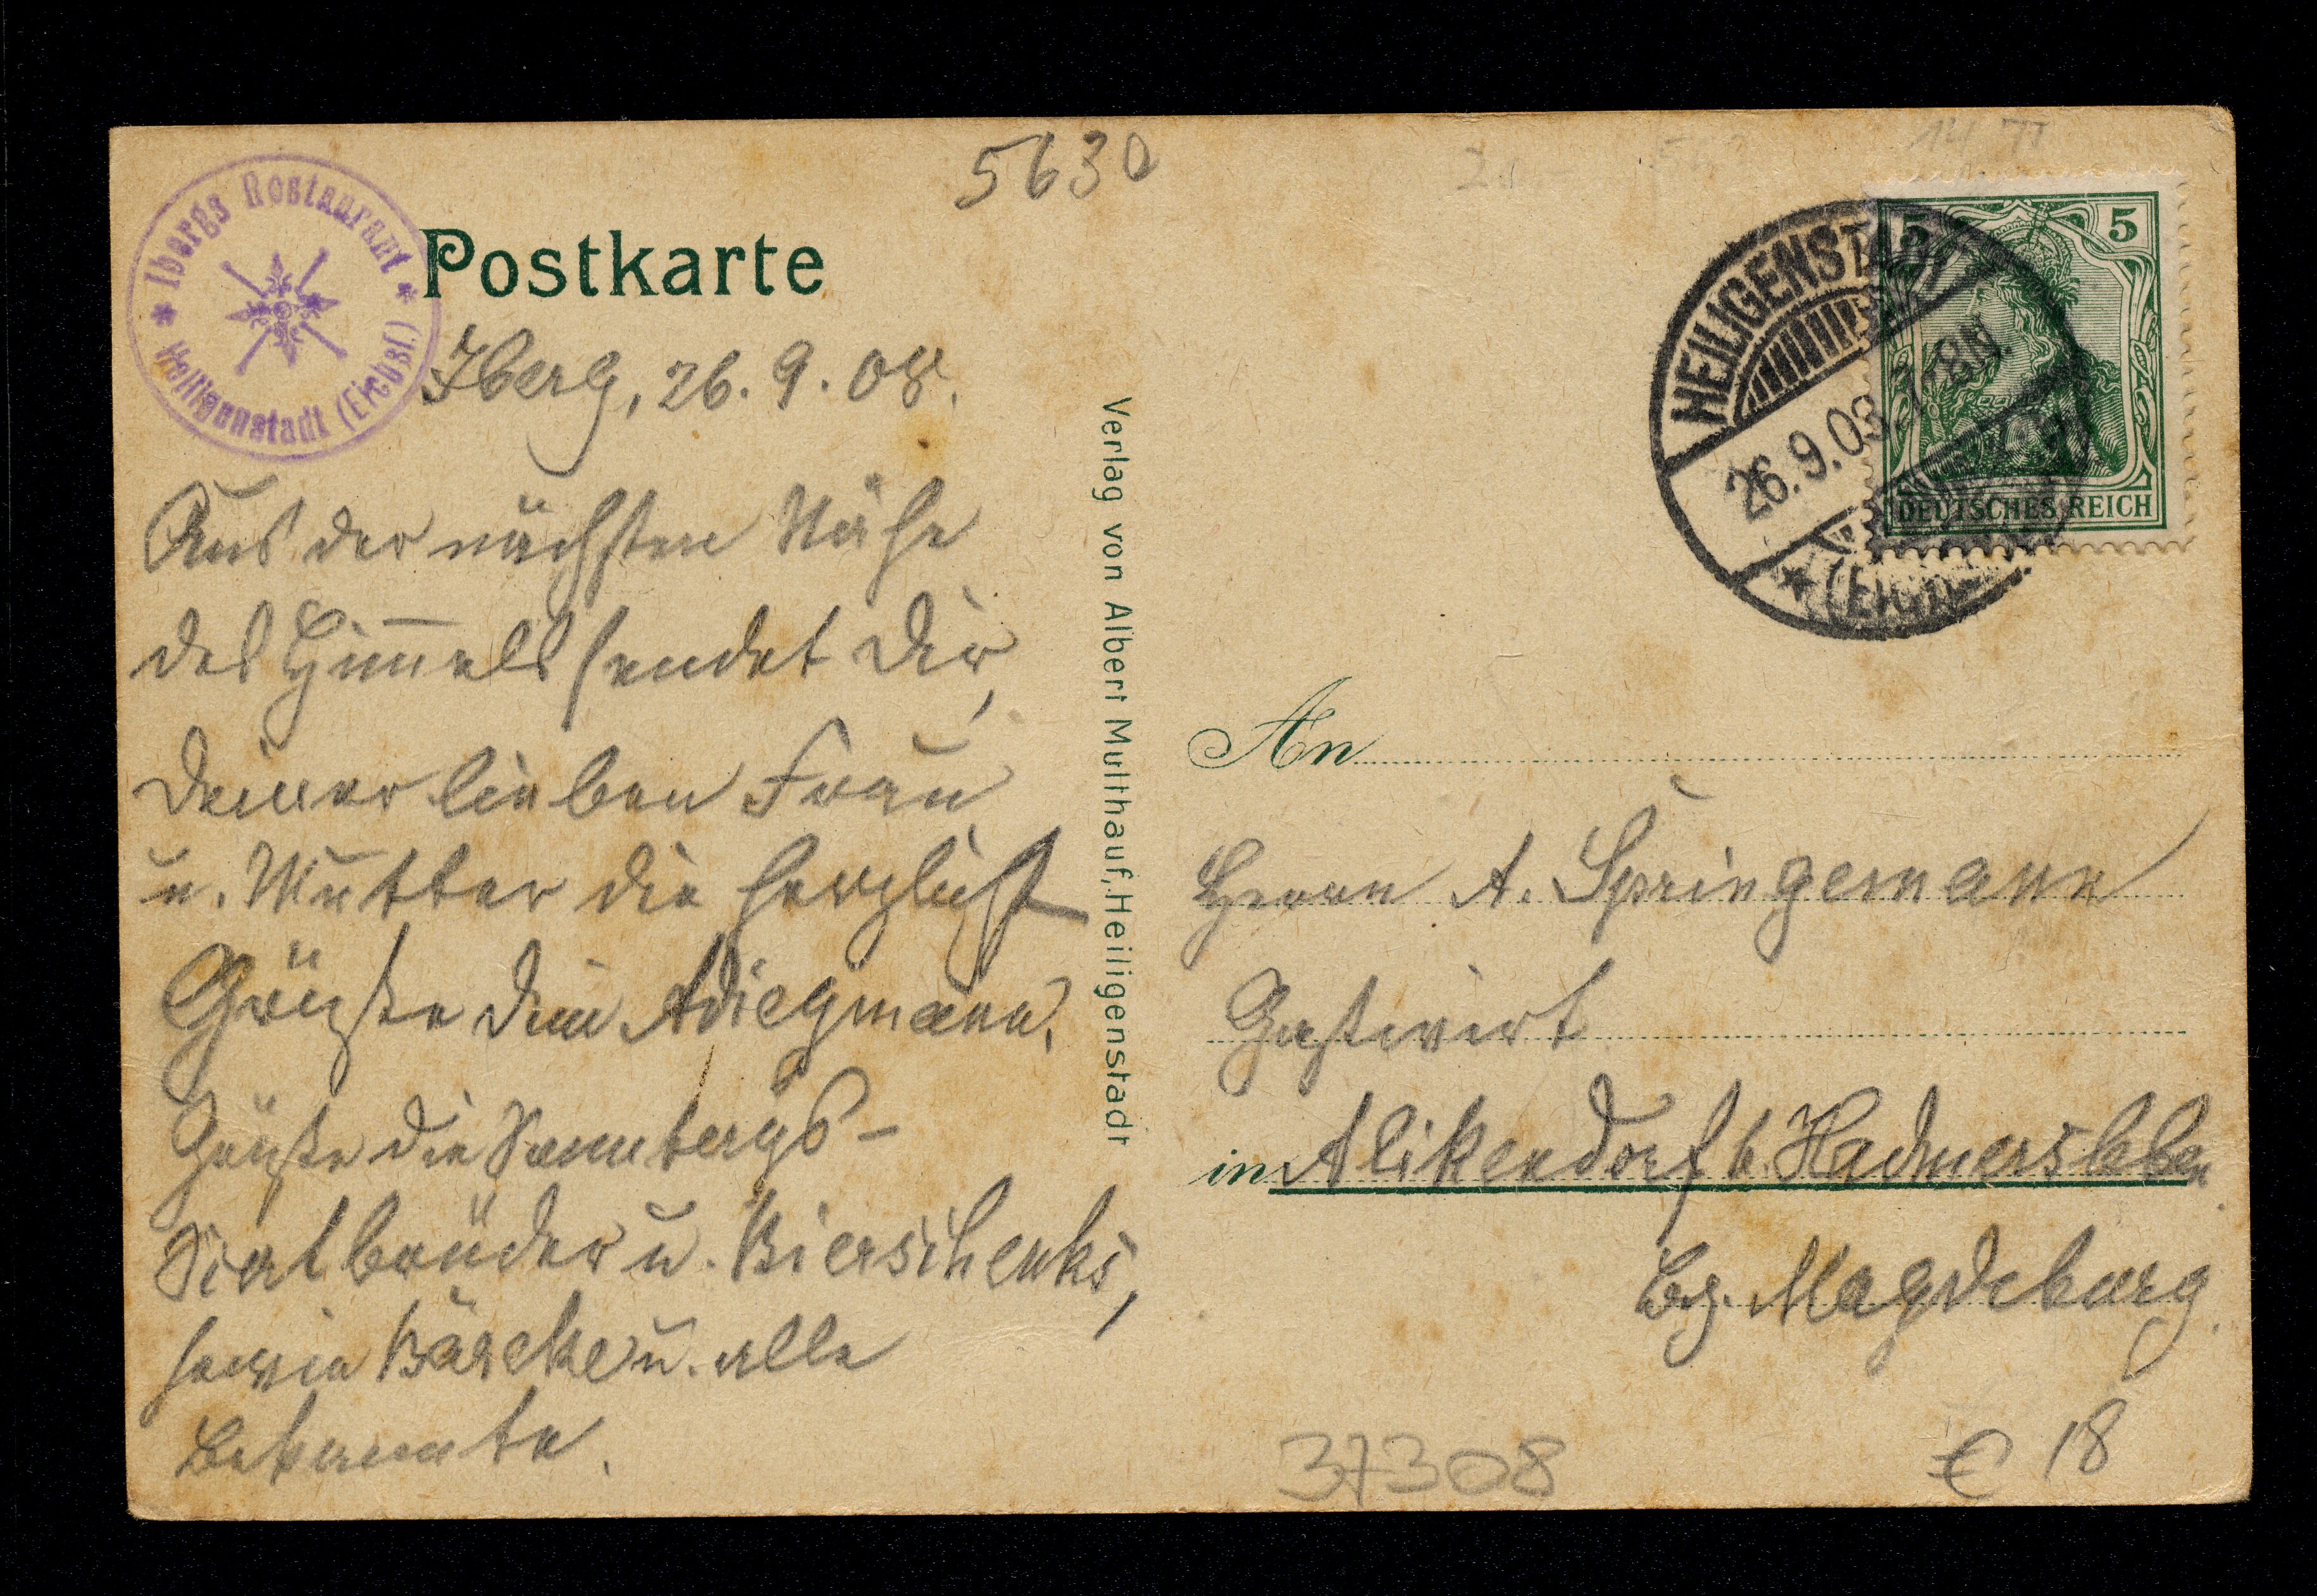 5630
* Ibergs Restaurant *
Heiligenstadt (Eichsf.)
Postkarte
Iberg, 26. 9. 08.
Aus der nächsten Nähe
des Him̅els sendet Dir,
Deiner lieben Frau
u. Mutter die herzlichst
Grüße Dein
Grüße die
u. Bierschenks,
sowie u. alle
Bekannte.
Verlag von Albert Multhauf, Heiligenstadt
HEILIGENSTADT
26.9.08 7-8N.
* (EICHSF
5 5
DEUTSCHES REICH
An
Herrn A. Springemann
Gastwirt
in Alikendorf b. Hadmersleben
Bz. Magdeburg.
37308
€ 18